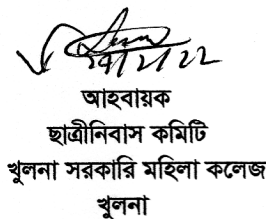 আহবায়ক
ছাত্রীনিবাস কমিটি
খুলনা সরকারি মহিলা কলেজ
খুলনা